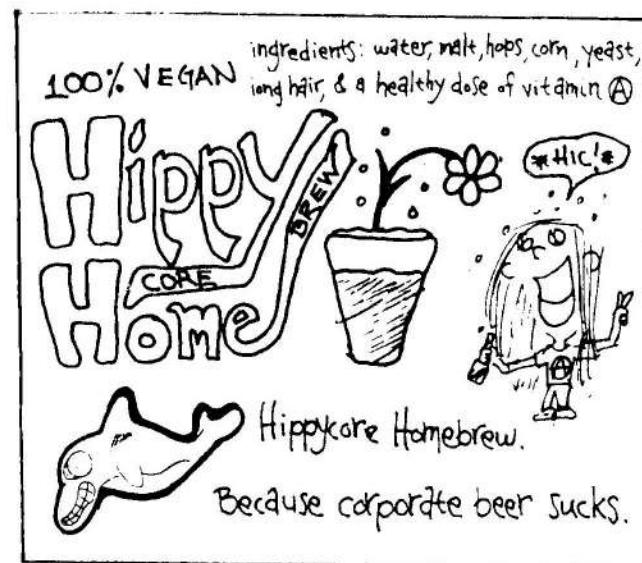 100% VEGAN
ingredients: water, malt, hops, corn, yeast,
long hair, & a healthy dose of vitamin Ⓐ
Hippy
CORE
BREW
Home
*HIC!*
A
Hippycore Homebrew.
Because corporate beer sucks.